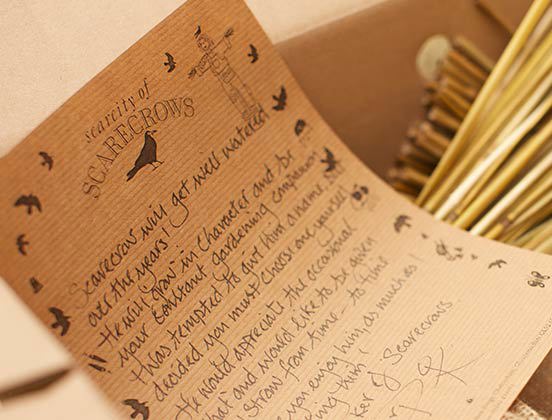 scarcity of
SCARECROWS
Scarecrow will get well watered
over the years!
He will grow in character and be
your constant gardening companion
I was tempted to give him a name, but
decided you must choose one yourself
He would appreciate the occasional
hat and would like to be given
straw from time - to time
you enjoy him, as much as I
ing him!
or of Scarecrows